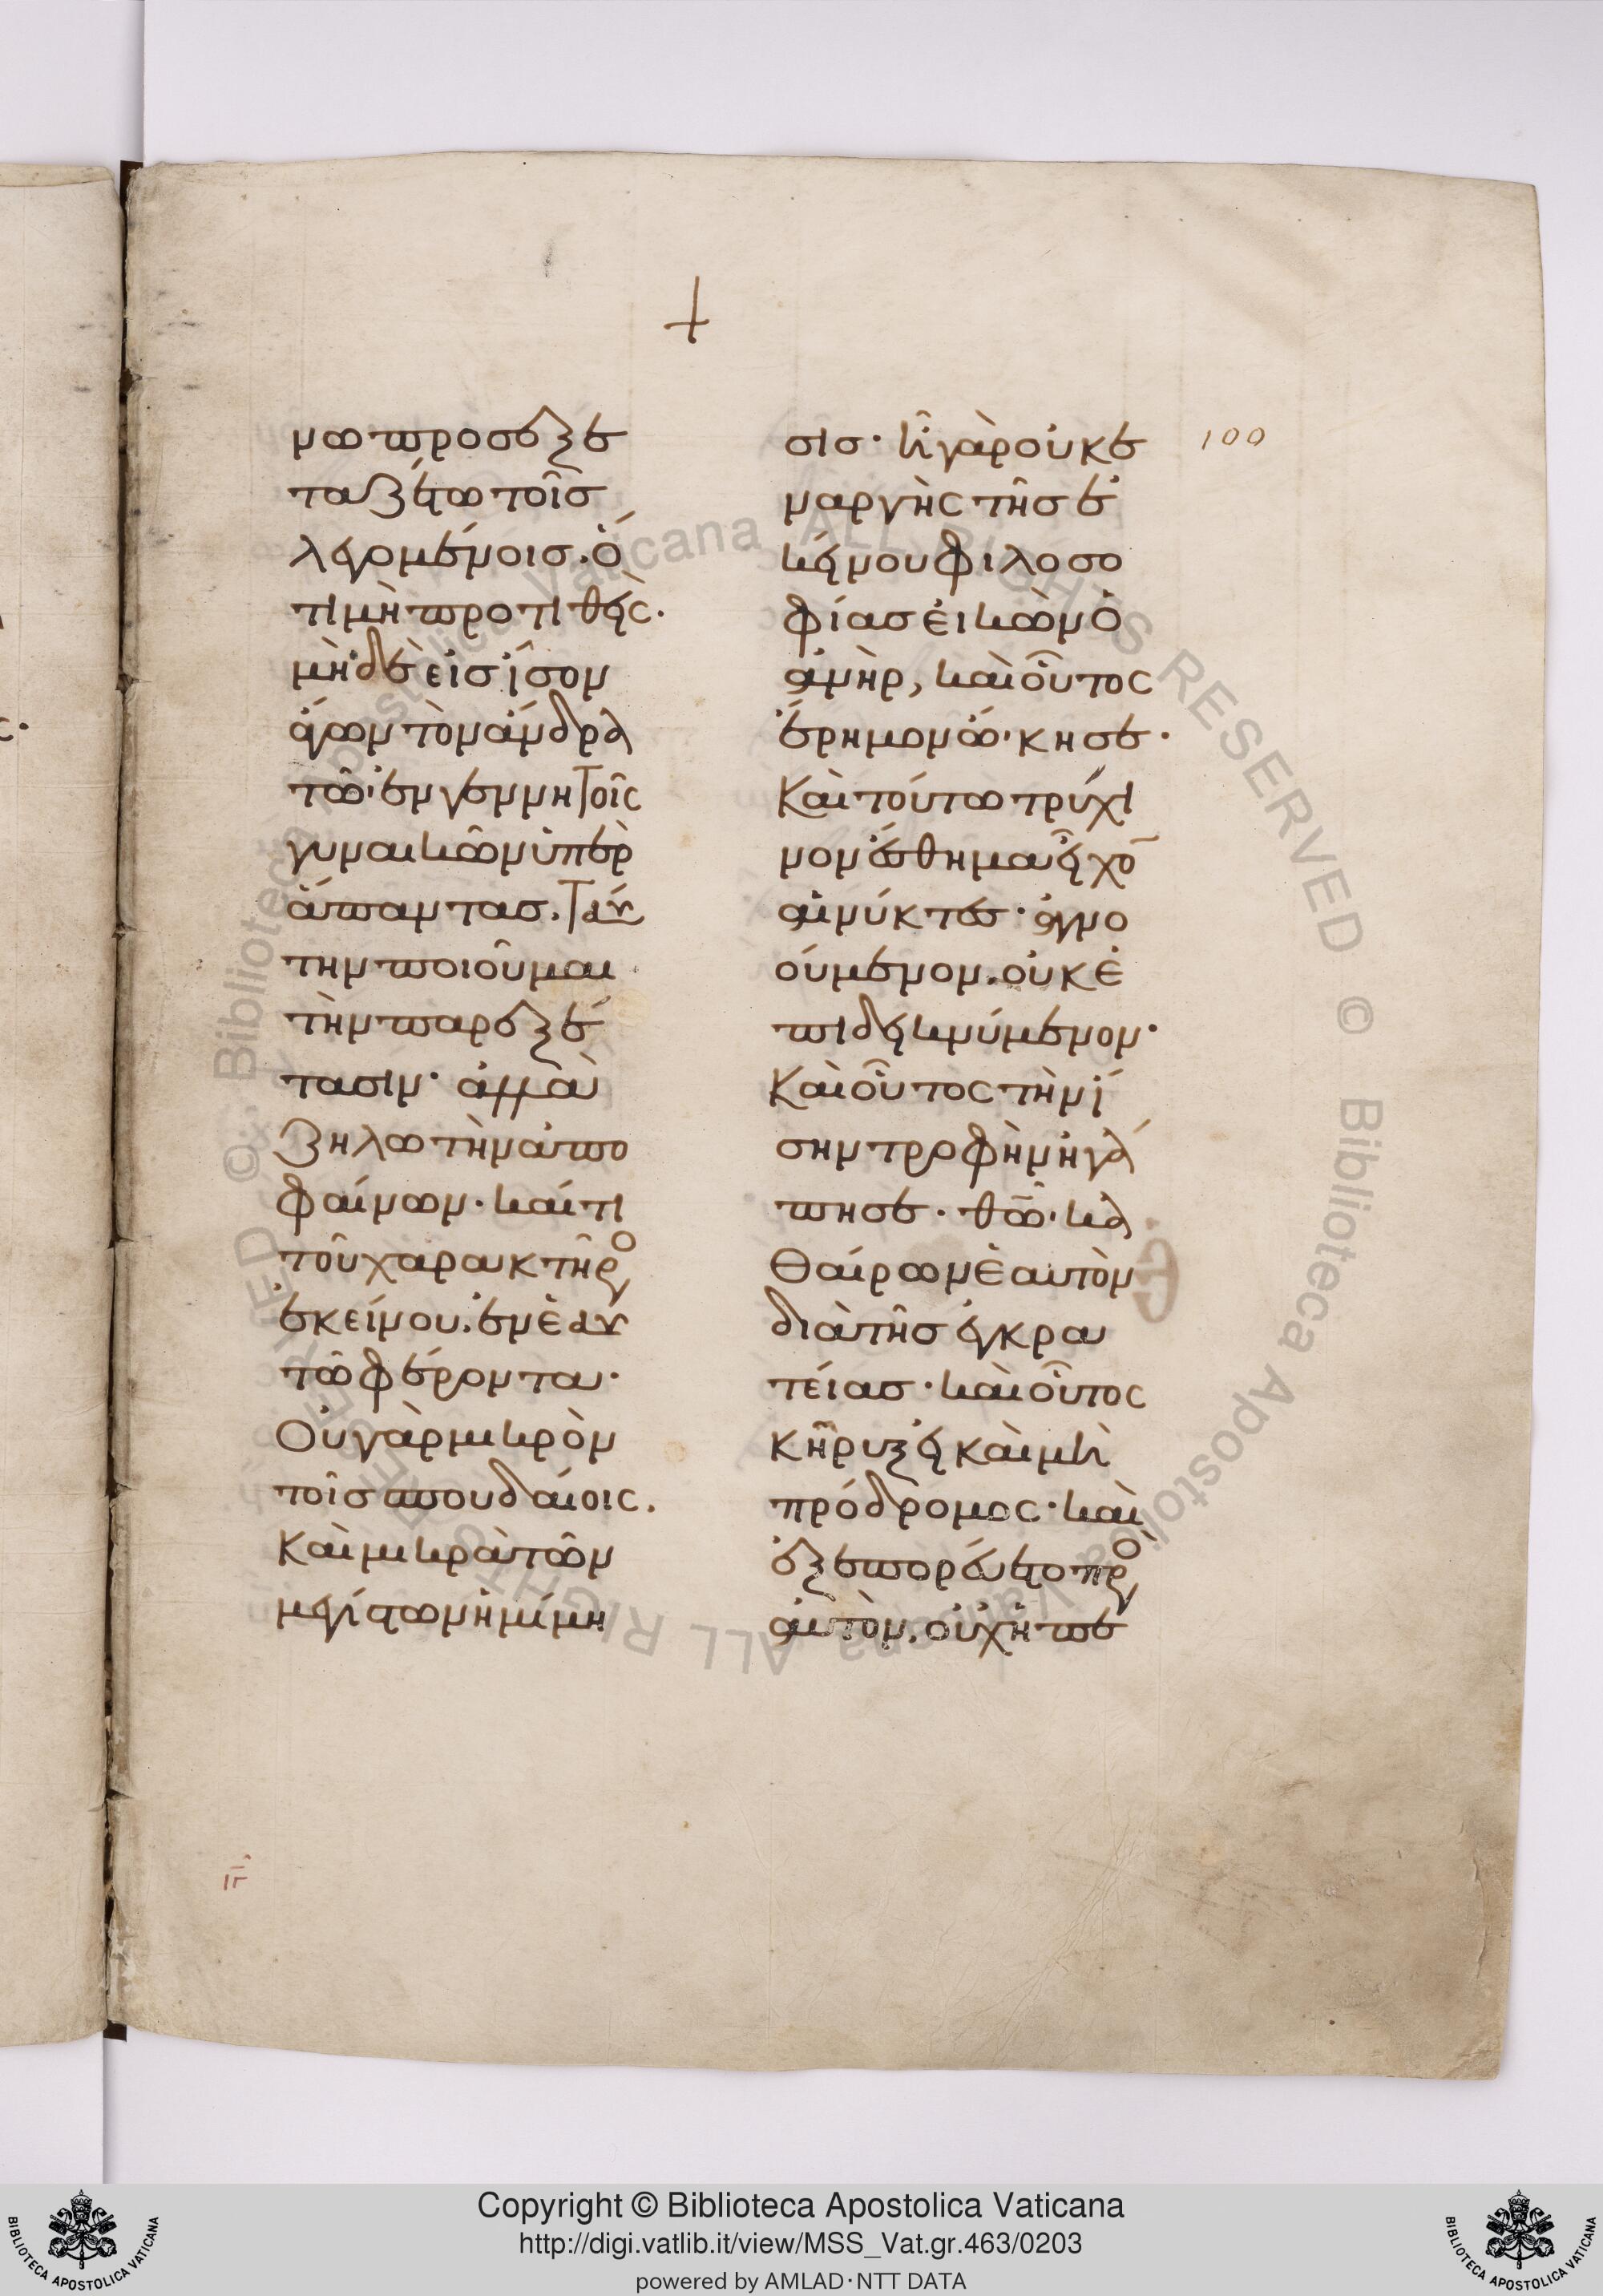 νω προσεξε
ταζέτω τοῖσ
λεγομένοισ. ὅ
τι μὴ προτιθείς.
μὴ δὲ εἰσ ἴσον
ἄγων τὸν ἄνδρα
τῶ ἐν γεννητοῖς
γυναικῶν ὑπὲρ
ἅπαντασ. ταύ
την ποιοῦμαι
τὴν παρεξέ
τασιν· ἀλλὰ
ζηλωτὴν ἀπο
φαίνων· καί τι
τοῦ χαρακτῆρο
ἐκείνου. ἐν ἑαυ
τῶ φέροντα·
Οὐ γὰρ μικρὸν
τοῖσ σπουδαίοις.
Καὶ μικρὰ τῶν
μεγίστων ἡ μίμη
σισ· ἢ γὰρ οὐκ ἐ
ναργὴς τῆσ ἐ
κείνου φιλοσο
φίασ εἰκὼν ὁ
ἀνὴρ, καὶ οὗτος
ἐρημον ὤκησε·
Καὶ τούτω τρύχι
νον ἔσθημα εἶχο
αἱ νύκτεσ· ἀγνο
ούμενον. οὐκ ἐ
πιδεικνύμενον·
Καὶ οὗτος τὴν ἴ
σην τροφὴν ἠγά
πησε. θῶ κα
θαίρων ἑαυτὸν
διὰ τῆσ ἐγκρα
τείασ· καὶ οὗτος
κῆρυξ εἰ καὶ μὴ
πρόδρομος· καὶ
ἐξεπορεύετο πρὸ
αὐτὸν. οὐχ ἡ πε
100
ιγ
Copyright © Biblioteca Apostolica Vaticana
http://digi.vatlib.it/view/MSS_Vat.gr.463/0203
powered by AMLAD·NTT DATA
BIBLIOTECA APOSTOLICA VATICANA
BIBLIOTECA APOSTOLICA VATICANA